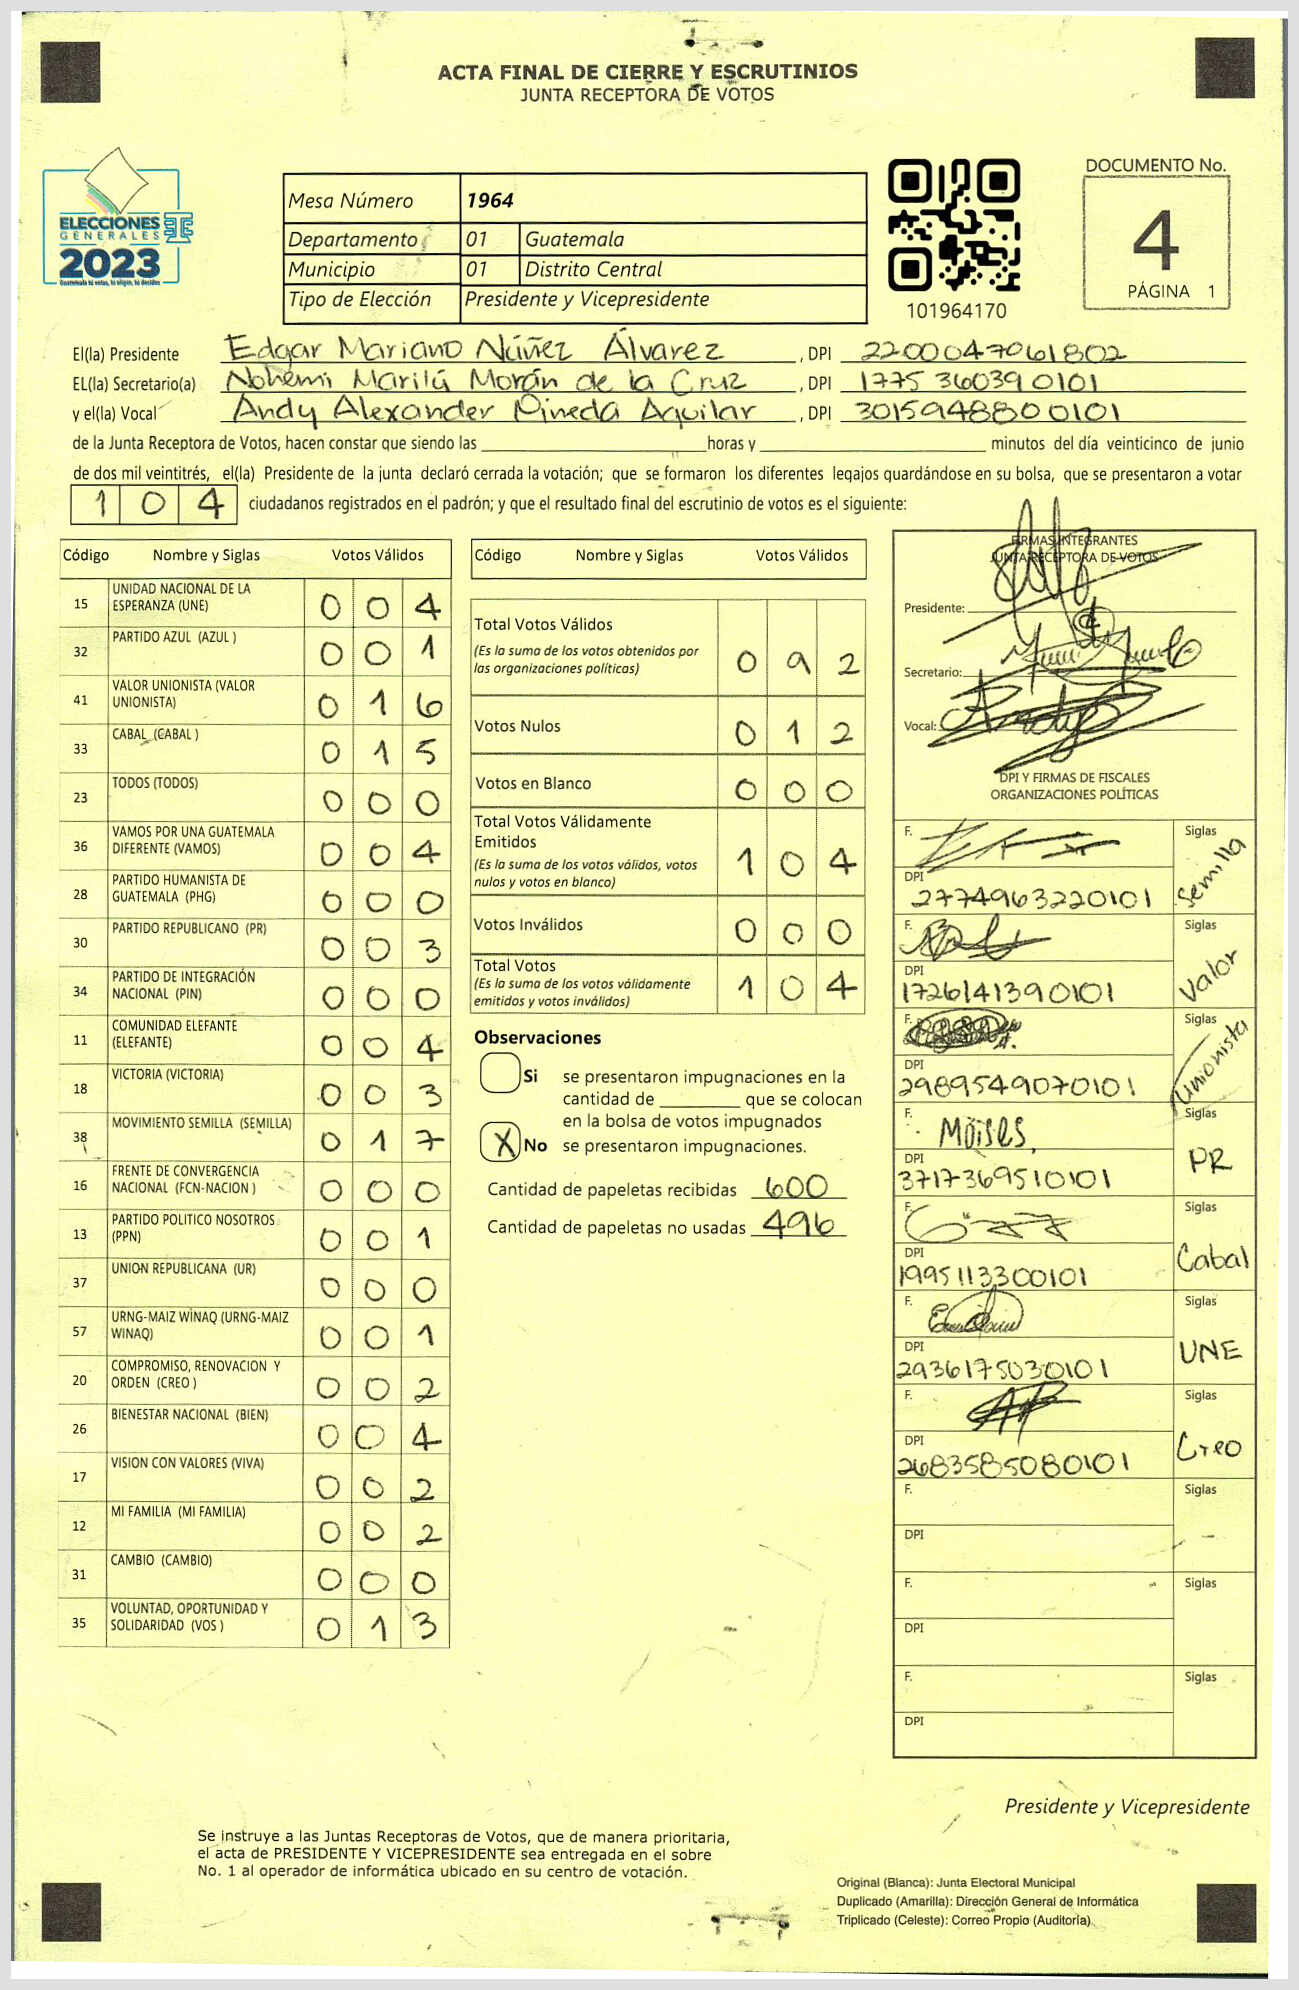 ACTA FINAL DE CIERRE Y ESCRUTINIOS
JUNTA RECEPTORA DE VOTOS
ELECCIONES
GENERALES
2023
Guatemala tú votas, tú eliges, tú decides
Mesa Número 1964
Departamento 01 Guatemala
Municipio 01 Distrito Central
Tipo de Elección Presidente y Vicepresidente
101964170
DOCUMENTO No.
4
PÁGINA 1
El(la) Presidente Edgar Mariano Núñez Álvarez , DPI 2200047061802
EL(la) Secretario(a) Nohemi Marilú Morán de la Cruz , DPI 1775360390101
y el(la) Vocal Andy Alexander Pineda Aguilar , DPI 3015948800101
de la Junta Receptora de Votos, hacen constar que siendo las horas y minutos del día veinticinco de junio
de dos mil veintitrés, el(la) Presidente de la junta declaró cerrada la votación; que se formaron los diferentes legajos guardándose en su bolsa, que se presentaron a votar
104 ciudadanos registrados en el padrón; y que el resultado final del escrutinio de votos es el siguiente:
Código Nombre y Siglas Votos Válidos
15 UNIDAD NACIONAL DE LA ESPERANZA (UNE) 004
32 PARTIDO AZUL (AZUL ) 001
41 VALOR UNIONISTA (VALOR UNIONISTA) 016
33 CABAL (CABAL ) 015
23 TODOS (TODOS) 000
36 VAMOS POR UNA GUATEMALA DIFERENTE (VAMOS) 004
28 PARTIDO HUMANISTA DE GUATEMALA (PHG) 000
30 PARTIDO REPUBLICANO (PR) 003
34 PARTIDO DE INTEGRACIÓN NACIONAL (PIN) 000
11 COMUNIDAD ELEFANTE (ELEFANTE) 004
18 VICTORIA (VICTORIA) 003
38 MOVIMIENTO SEMILLA (SEMILLA) 017
16 FRENTE DE CONVERGENCIA NACIONAL (FCN-NACION ) 000
13 PARTIDO POLITICO NOSOTROS (PPN) 001
37 UNION REPUBLICANA (UR) 000
57 URNG-MAIZ WINAQ (URNG-MAIZ WINAQ) 001
20 COMPROMISO, RENOVACION Y ORDEN (CREO ) 002
26 BIENESTAR NACIONAL (BIEN) 004
17 VISION CON VALORES (VIVA) 002
12 MI FAMILIA (MI FAMILIA) 002
31 CAMBIO (CAMBIO) 000
35 VOLUNTAD, OPORTUNIDAD Y SOLIDARIDAD (VOS ) 013
Código Nombre y Siglas Votos Válidos
Total Votos Válidos
(Es la suma de los votos obtenidos por
las organizaciones políticas) 092
Votos Nulos 012
Votos en Blanco 000
Total Votos Válidamente
Emitidos
(Es la suma de los votos válidos, votos
nulos y votos en blanco) 104
Votos Inválidos 000
Total Votos
(Es la suma de los votos válidamente
emitidos y votos inválidos) 104
Observaciones
Si se presentaron impugnaciones en la
cantidad de que se colocan
en la bolsa de votos impugnados
X No se presentaron impugnaciones.
Cantidad de papeletas recibidas 600
Cantidad de papeletas no usadas 496
FIRMAS INTEGRANTES
JUNTA RECEPTORA DE VOTOS
Presidente:
Secretario:
Vocal:
DPI Y FIRMAS DE FISCALES
ORGANIZACIONES POLÍTICAS
F. Siglas Semilla
DPI 2774963220101
F. Siglas Valor
DPI 1726141390101
F. Siglas Unionista
DPI 2989549070101
F. Moises Siglas PR
DPI 3717369510101
F. Siglas Cabal
DPI 1995113300101
F. Siglas UNE
DPI 2936175030101
F. Siglas Creo
DPI 2683585080101
F. Siglas
DPI
F. Siglas
DPI
F. Siglas
DPI
Presidente y Vicepresidente
Se instruye a las Juntas Receptoras de Votos, que de manera prioritaria,
el acta de PRESIDENTE Y VICEPRESIDENTE sea entregada en el sobre
No. 1 al operador de informática ubicado en su centro de votación.
Original (Blanca): Junta Electoral Municipal
Duplicado (Amarilla): Dirección General de Informática
Triplicado (Celeste): Correo Propio (Auditoría)